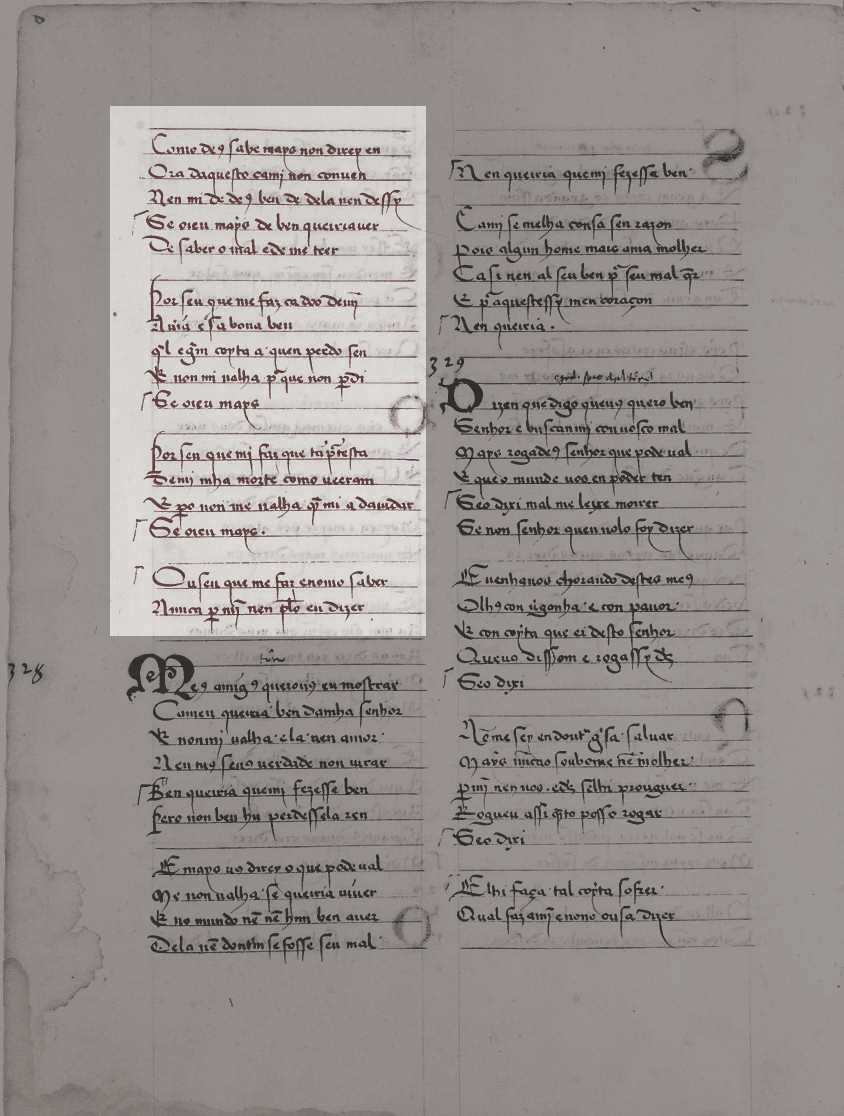 Como de9 sabe mays non direy en
Ora daquesto cami non conuen
Nen mi de de9 ben de dela nen dessy
Se oieu mays de ben queiriauer
De saber o mal ede me teer
Por seu que me faz ca doo
Auia e sa bona ben
ql e coyta a quen perdo sen
E non mi ualha pᵃ que non pdi
Se oieu mays
Por seu que mi faz que
mha morte como ueeram
E po non me ualha mi a dauidar
Se oieu mays.
Ou seu que me faz enono saber
Nunca p mȷ̄ nen plo eu dizer
328
Me9 amig9 querouo9 eu mostrar
Comeu queiria ben damha senhor
E nonmi ualha ela nen amor
Nen uerdade non uirar
Ben queiria quemi fezesse ben
Pero non ben hu perdessela ren
E mays uo direy o que pode ual
Me non ualha se queiria uiuer
E no mundo nē nē hnn ben auer
Dela nē se fosse seu mal
Nen queiria quemi fezesse ben
Cami semelha cousa sen razon
Pois algun home mais ama molher
Ca si nen al seu ben pᵃ seu mal qr
E pᵃ aquestessy meu coraçon
Nen queiria.
329
Dizen que digo queu9 quero ben
Senhor e buscanmi conuosco mal
Mays rogade9 senhor que pode ual
E que o mundo uos en poder ten
Seo dixi mal me leyxe morrer
Se non senhor quen uolo foy dizer
E uenhauos chorando destes me9
Olh9 con ugonha e con pauor
E con coyta que ei desto senhor
Queuo dissom e rogassy d̄s
Seo dixi
Nōme sey endoutra gisa saluar
Mays soubome nē molher
p mȷ̄ nen uos. ed̄s selhi prouguer
Rogueu assi qᵃto posso rogar
Seo dixi
Elhi faça tal coyta sofrer
Qual faz amȷ̄ enono ousa dizer